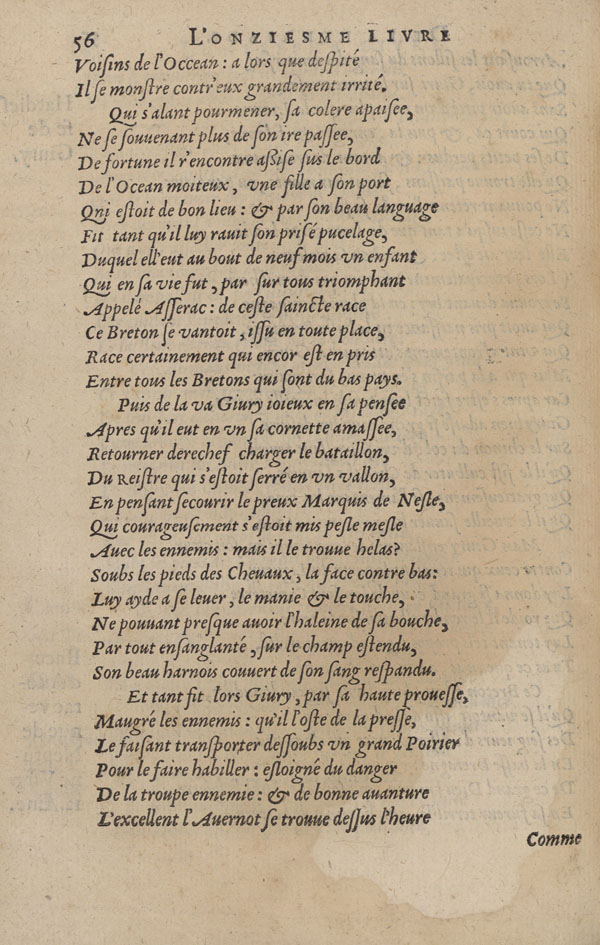 56 L'ONZIESME LIVRE
Voisins de l'Occean : a lors que despité
Il se monstre contr'eux grandement irrité.
Qui s'alant pourmener, sa colere apaisee,
Ne se souuenant plus de son ire passee,
De fortune il r'encontre assise sus le bord
De l'Ocean moiteux, vne fille a son port
Qni estoit de bon lieu : & par son beau language
Fit tant qu'il luy rauit son prisé pucelage,
Duquel ell'eut au bout de neuf mois vn enfant
Qui en sa vie fut, par sur tous triomphant
Appelé Asserac : de ceste saincte race
Ce Breton se vantoit, issu en toute place,
Race certainement qui encor est en pris
Entre tous les Bretons qui sont du bas pays.
Puis de la va Giury ioieux en sa pensee
Apres qu'il eut en vn sa cornette amassee,
Retourner derechef charger le bataillon,
Du Reistre qui s'estoit serré en vn vallon,
En pensant secourir le preux Marquis de Nesle,
Qui courageusement s'estoit mis pesle mesle
Auec les ennemis : mais il le trouue helas?
Soubs les pieds des Cheuaux, la face contre bas:
Luy ayde a se leuer, le manie & le touche,
Ne pouuant presque auoir l'haleine de sa bouche,
Par tout ensanglanté, sur le champ estendu,
Son beau harnois couuert de son sang respandu.
Et tant fit lors Giury, par sa haute prouesse,
Maugré les ennemis : qu'il l'oste de la presse,
Le faisant transporter dessoubs vn grand Poirier
Pour le faire habiller : esloigné du danger
De la troupe ennemie : & de bonne auanture
L'excellent l'Auernot se trouue dessus l'heure
Comme